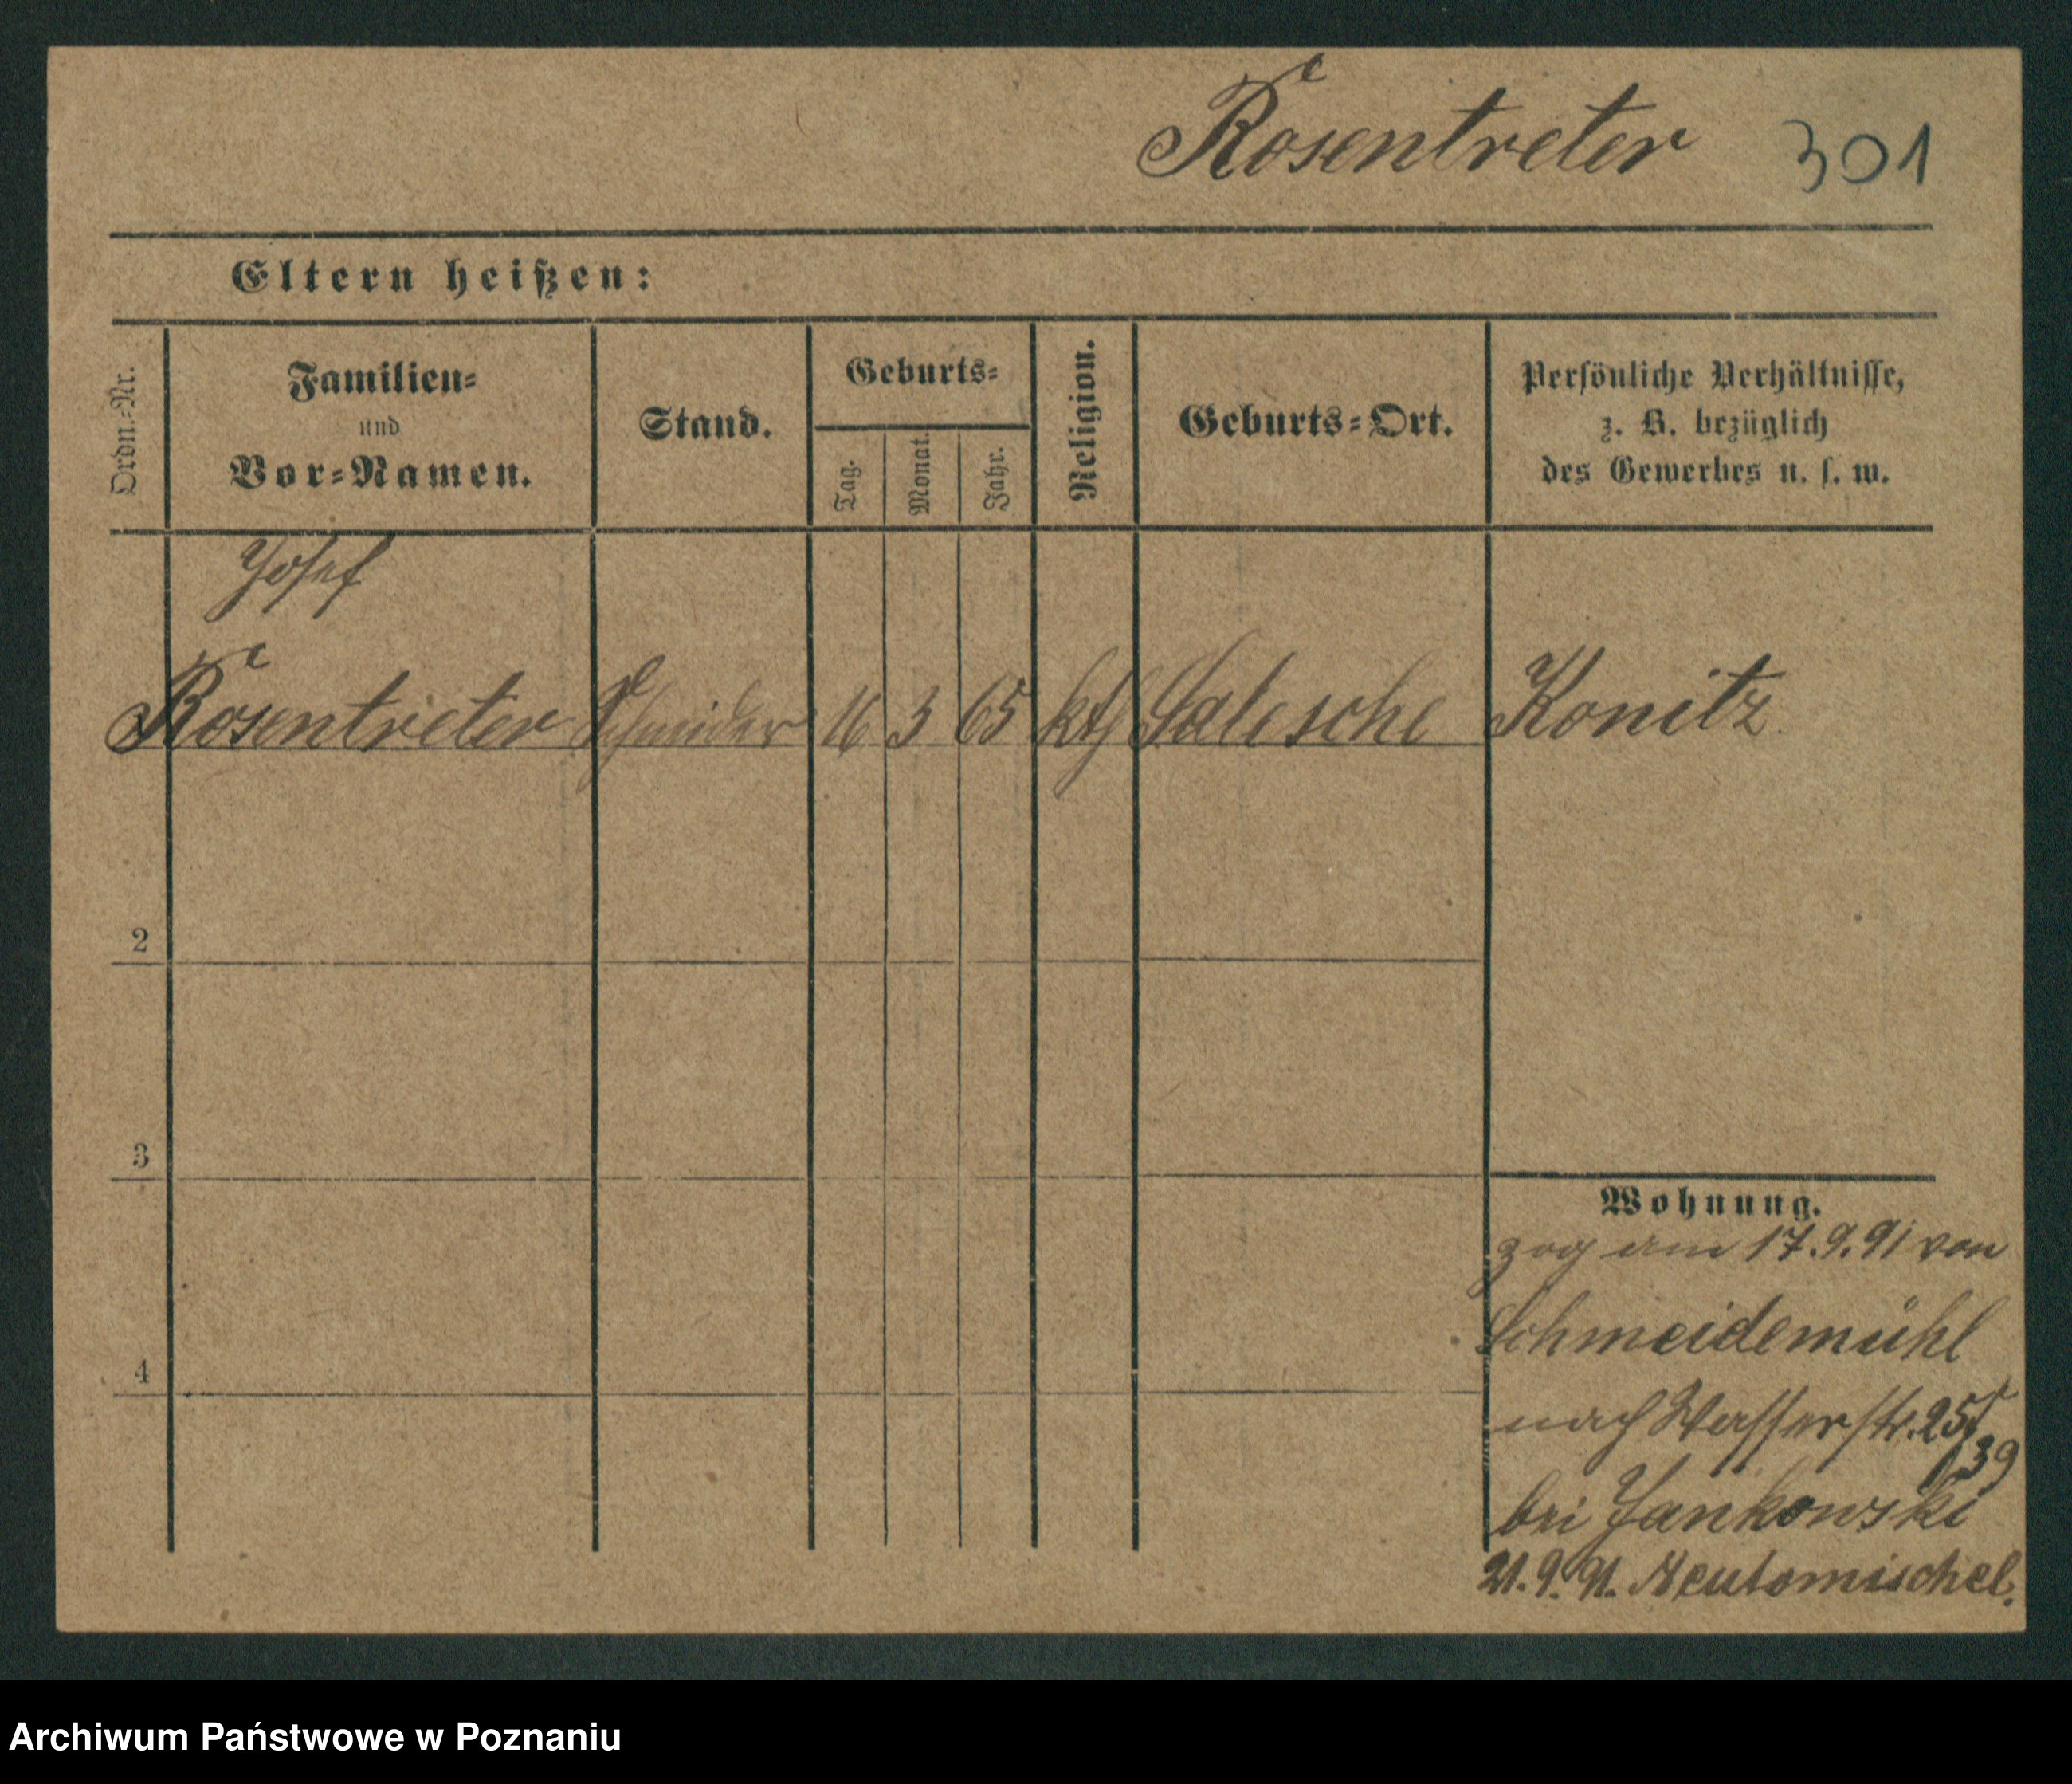 Rosentreter 301
Eltern heißen:
Ordn.-Nr.
Familien-
und
Vor-Namen.
Stand.
Geburts-
Tag.
Monat.
Jahr.
Religion.
Geburts-Ort.
Persönliche Verhältnisse,
z. B. bezüglich
des Gewerbes u. s. w.
Josef
Rosentreter Schneider 16 3 65 kth Salesche Konitz
2
3
4
Wohnung.
zog am 17.9.91 von
Schneidemühl
nach Wasserstr. 25
39
bei Jankowski
21.9.91. Neutomischel.
Archiwum Państwowe w Poznaniu